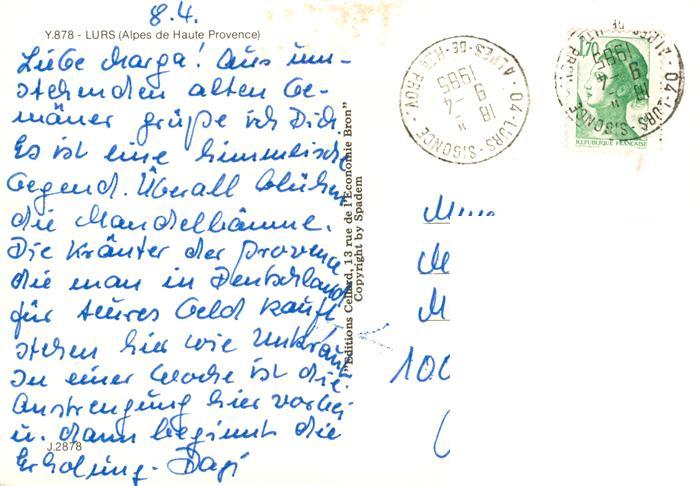 8.4.
Y.878 - LURS (Alpes de Haute Provence)
Liebe Marga! Aus um-
stehenden alten Ge-
mäuer grüße ich Dich.
Es ist eine himmlische
Gegend. Überall blühen
die Mandelbäume.
Die Kräuter der Provence
die man in Deutschland
für teures Geld kauft
stehen hier wie Unkraut
In einer Woche ist die
Anstrengung hier vorbei
u. dann beginnt die
Erholung. Dagi
J.2878
"Editions Cellard, 13 rue de l'Economie Bron"
Copyright by Spadem
04-LURS-SIGONCE
ALPES-DE-HTE PROV.
18 H
9-4
1985
1,70
REPUBLIQUE FRANÇAISE
04-LURS-SIGONCE
ALPES-DE-HTE PROV.
18 H
9-4
1985
100